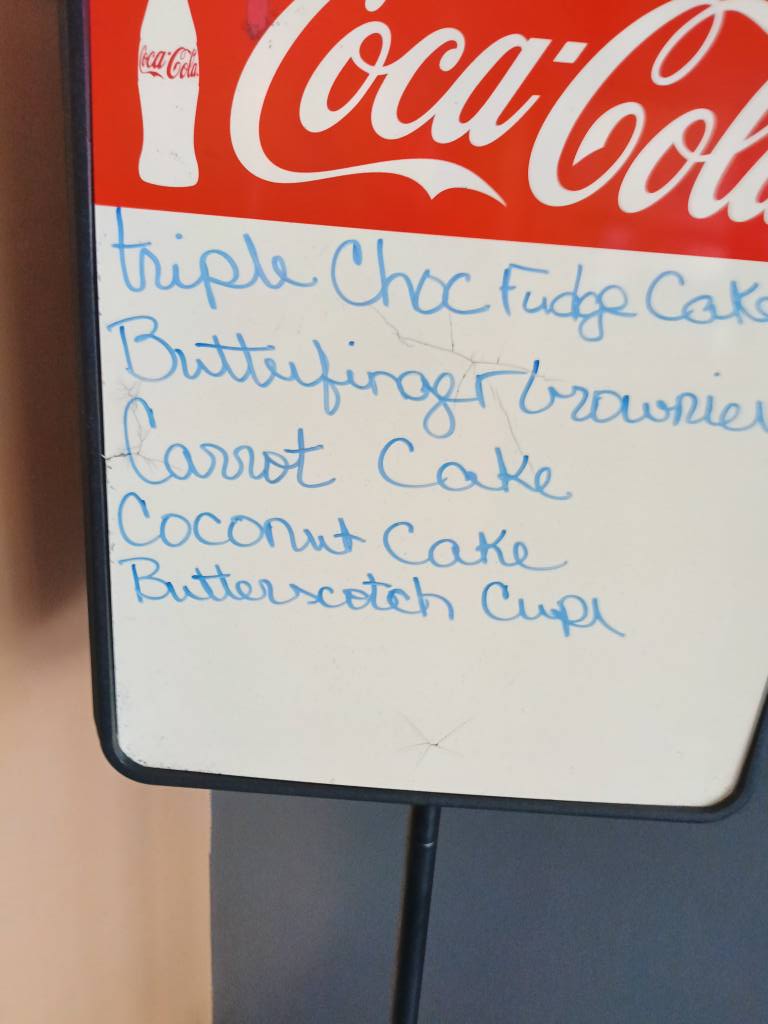 Coca-Cola
Coca-Cola
triple Choc Fudge Cake
Butterfinger brownies
Carrot Cake
Coconut Cake
Butterscotch Cups